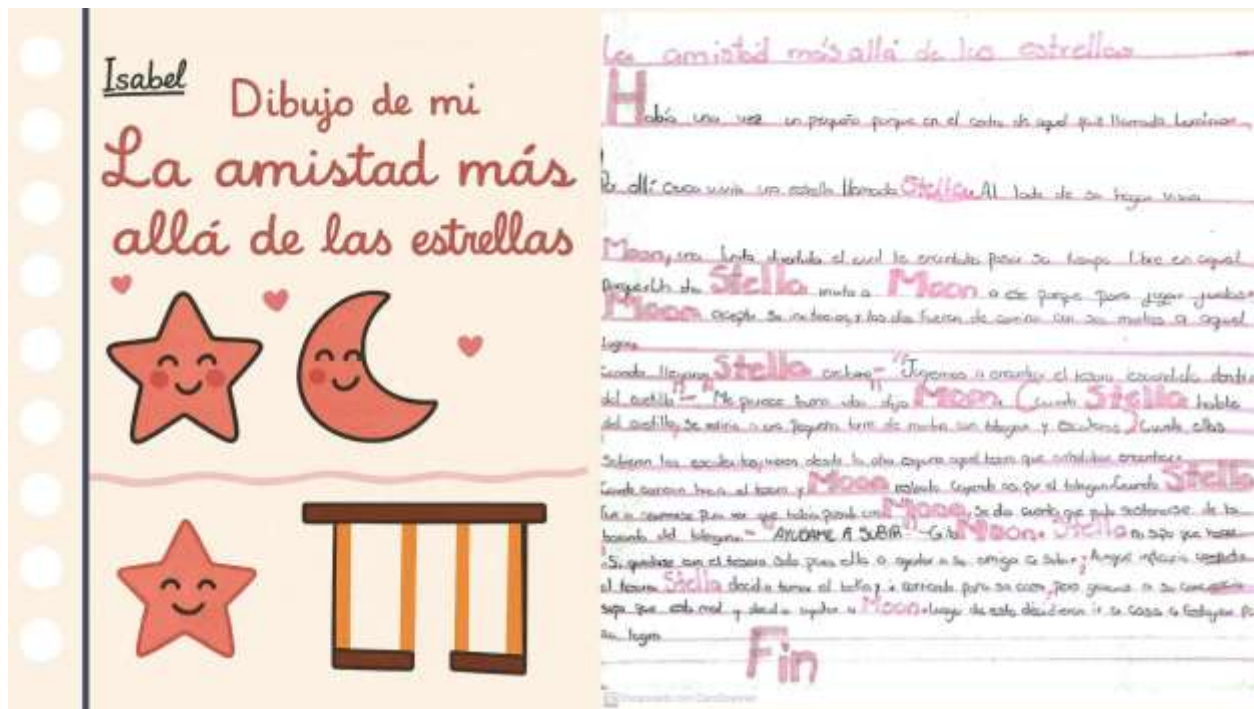 Isabel
Dibujo de mi
La amistad más
allá de las estrellas
La amistad más allá de las estrellas
Había una vez un pequeño parque en el centro de aquel que llamado
Por allí cerca vivía una estrella llamada Stella. Al lado de su hogar vivía
Moon, una lunita divertida el cual le encantaba pasar su tiempo libre en aquel
parque. Un día Stella invita a Moon a ese parque para jugar juntas.
Moon acepto su invitacion, y las dos fueron de camino con sus a aquel
lugar.
Cuando llegaron Stella exclamo - "Juguemos a encontrar el tesoro escondido dentro
del castillo" - "Me parece buena idea" dijo Moon. (Cuando Stella habla
del castillo, se refiria a una pequeña torre de madera con tobogan y escaleras) Cuando ellas
Subieron las escaleras, vieron desde la otra esquina aquel tesoro que encontrar.
Cuando corrieron hacia el tesoro y Moon resbalo cayendo asi por el tobogan. Cuando Stella
fue a para ver que habia pasado con Moon, se dio cuenta que pudo sostenerse de los
del tobogan. - "AYUDAME A SUBIR" - Grito Moon. Stella no supo que hacer
Si quedarse con el tesoro solo para ella o ayudar a su amiga a subir. Aunque
el tesoro Stella decidio tomar el y ir corriendo para su casa, pero gracias a su conciencia
supo que esta mal y decidio ayudar a Moon. Luego de esto decidieron ir a casa a festejar por
su logro
Fin